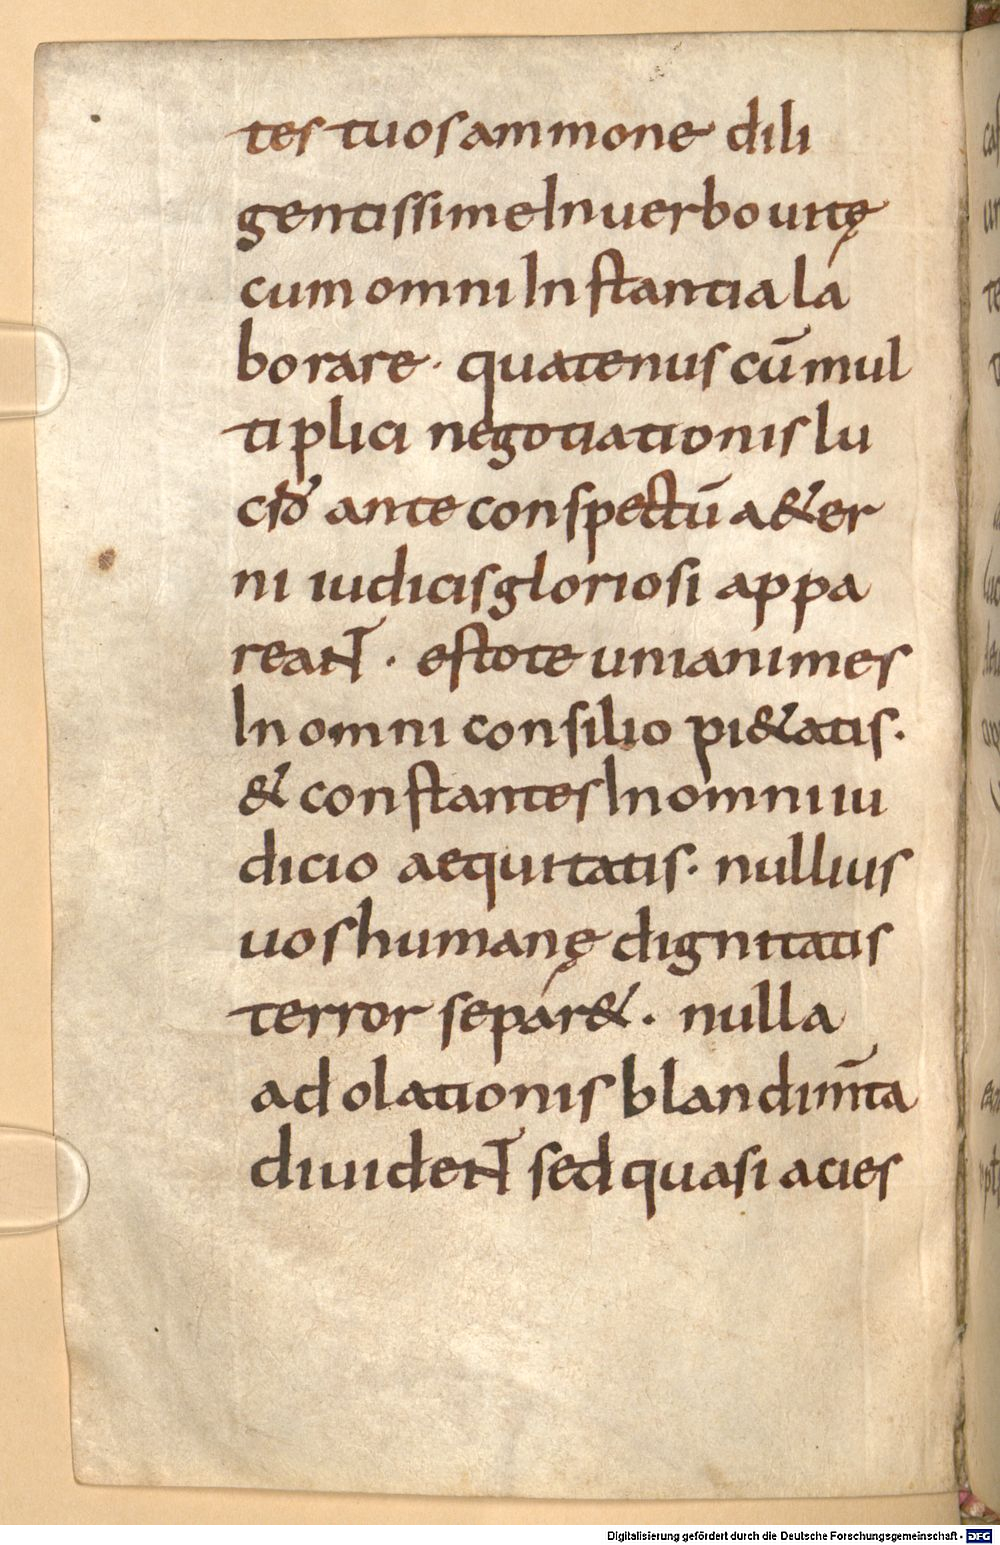 tes tuos ammone dili
gentissime In uerbo uitę
cum omni Instantia la
borare · quatenus cū mul
tiplici negotiationis lu
ciđ ante conspectū a&er
ni iudicis gloriosi appa
reaNT · estote unianimes
In omni consilio pi&atis ·
& constantes In omni iu
dicio aequitatis · nullius
uos humanę dignitatis
terror separ& · nulla
adolationis blandim̄ta
diuideNT sed quasi acies
Digitalisierung gefördert durch die Deutsche Forschungsgemeinschaft - DFG